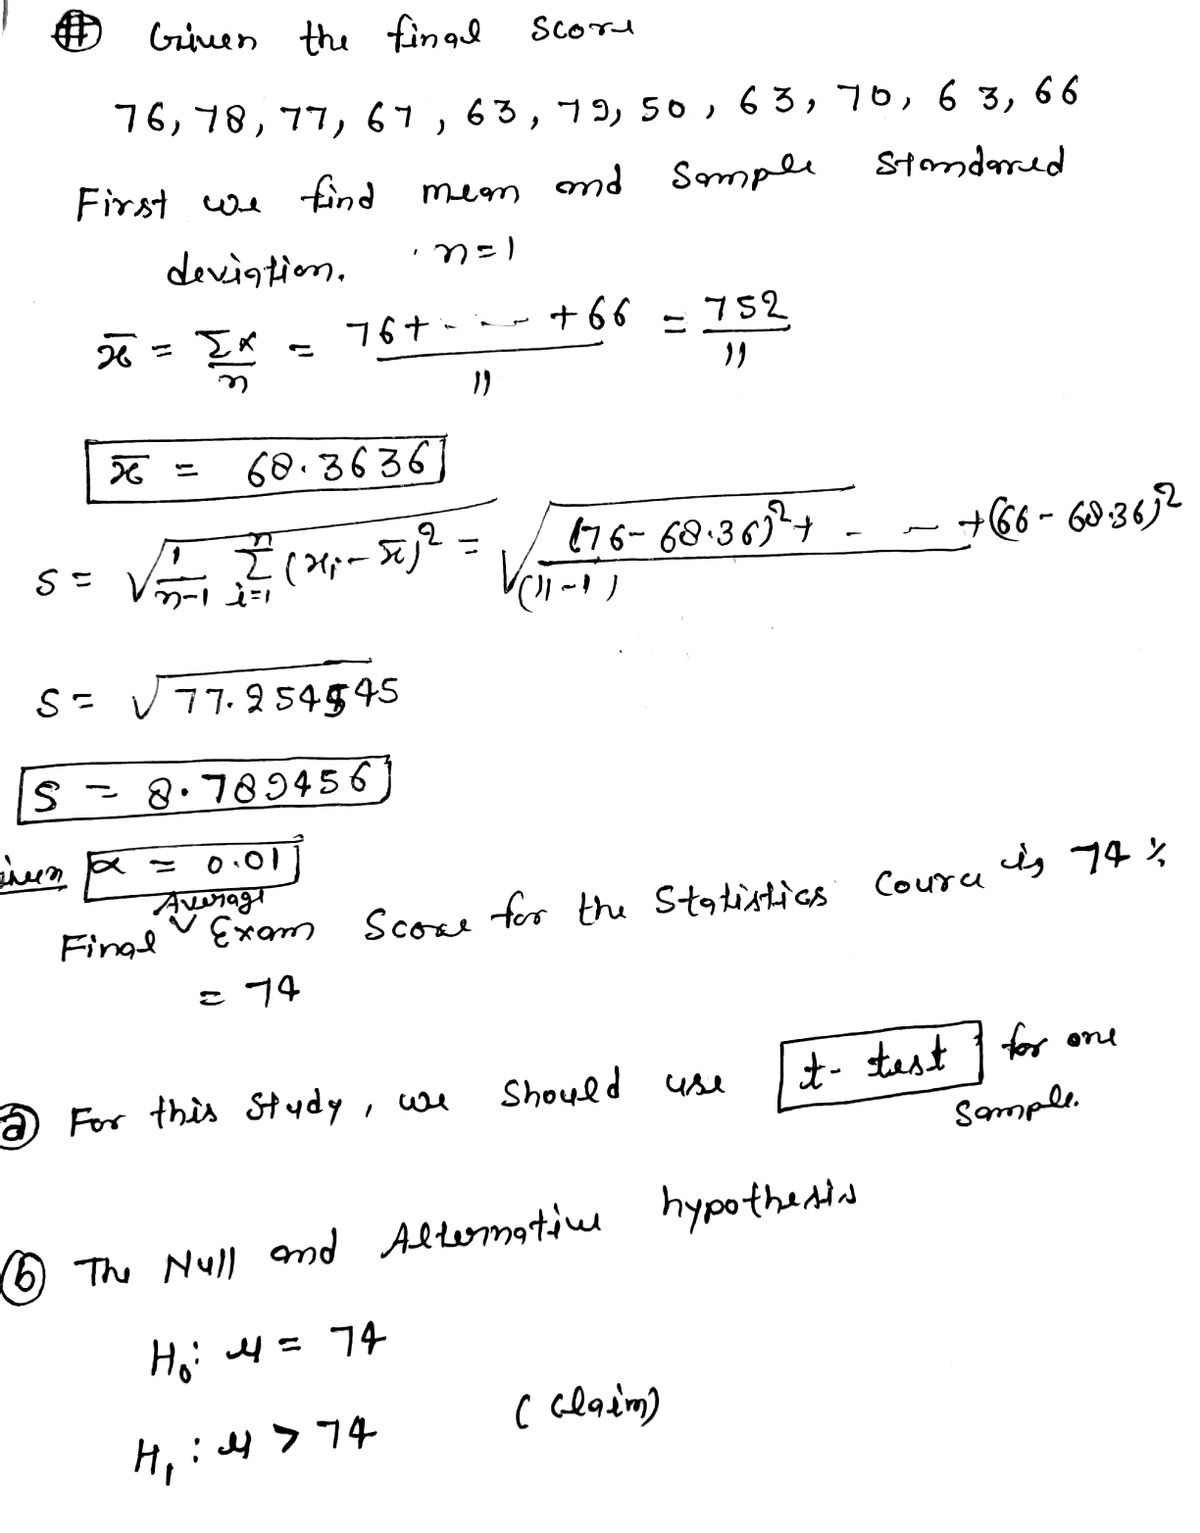 # Given the final score
76, 78, 77, 67, 63, 79, 50, 63, 70, 63, 66
First we find mean and Sample Standared
deviation. n=1
x̄ = Σx/n = 76+- - - +66/11 = 752/11
x̄ = 68.3636
S = √(1/(n-1) Σ_{i=1}^{n} (xᵢ - x̄)²) = √((76-68.36)²+ - - +(66-68.36)²/(11-1))
S = √77.254545
S = 8.789456
given α = 0.01
Final Average Exam Score for the Statistics Cource is 74 %
= 74
(a) For this Study, we Should use t-test for one
Sample.
(b) The Null and Alternative hypothesis
H₀: μ = 74
H₁: μ > 74 (Claim)